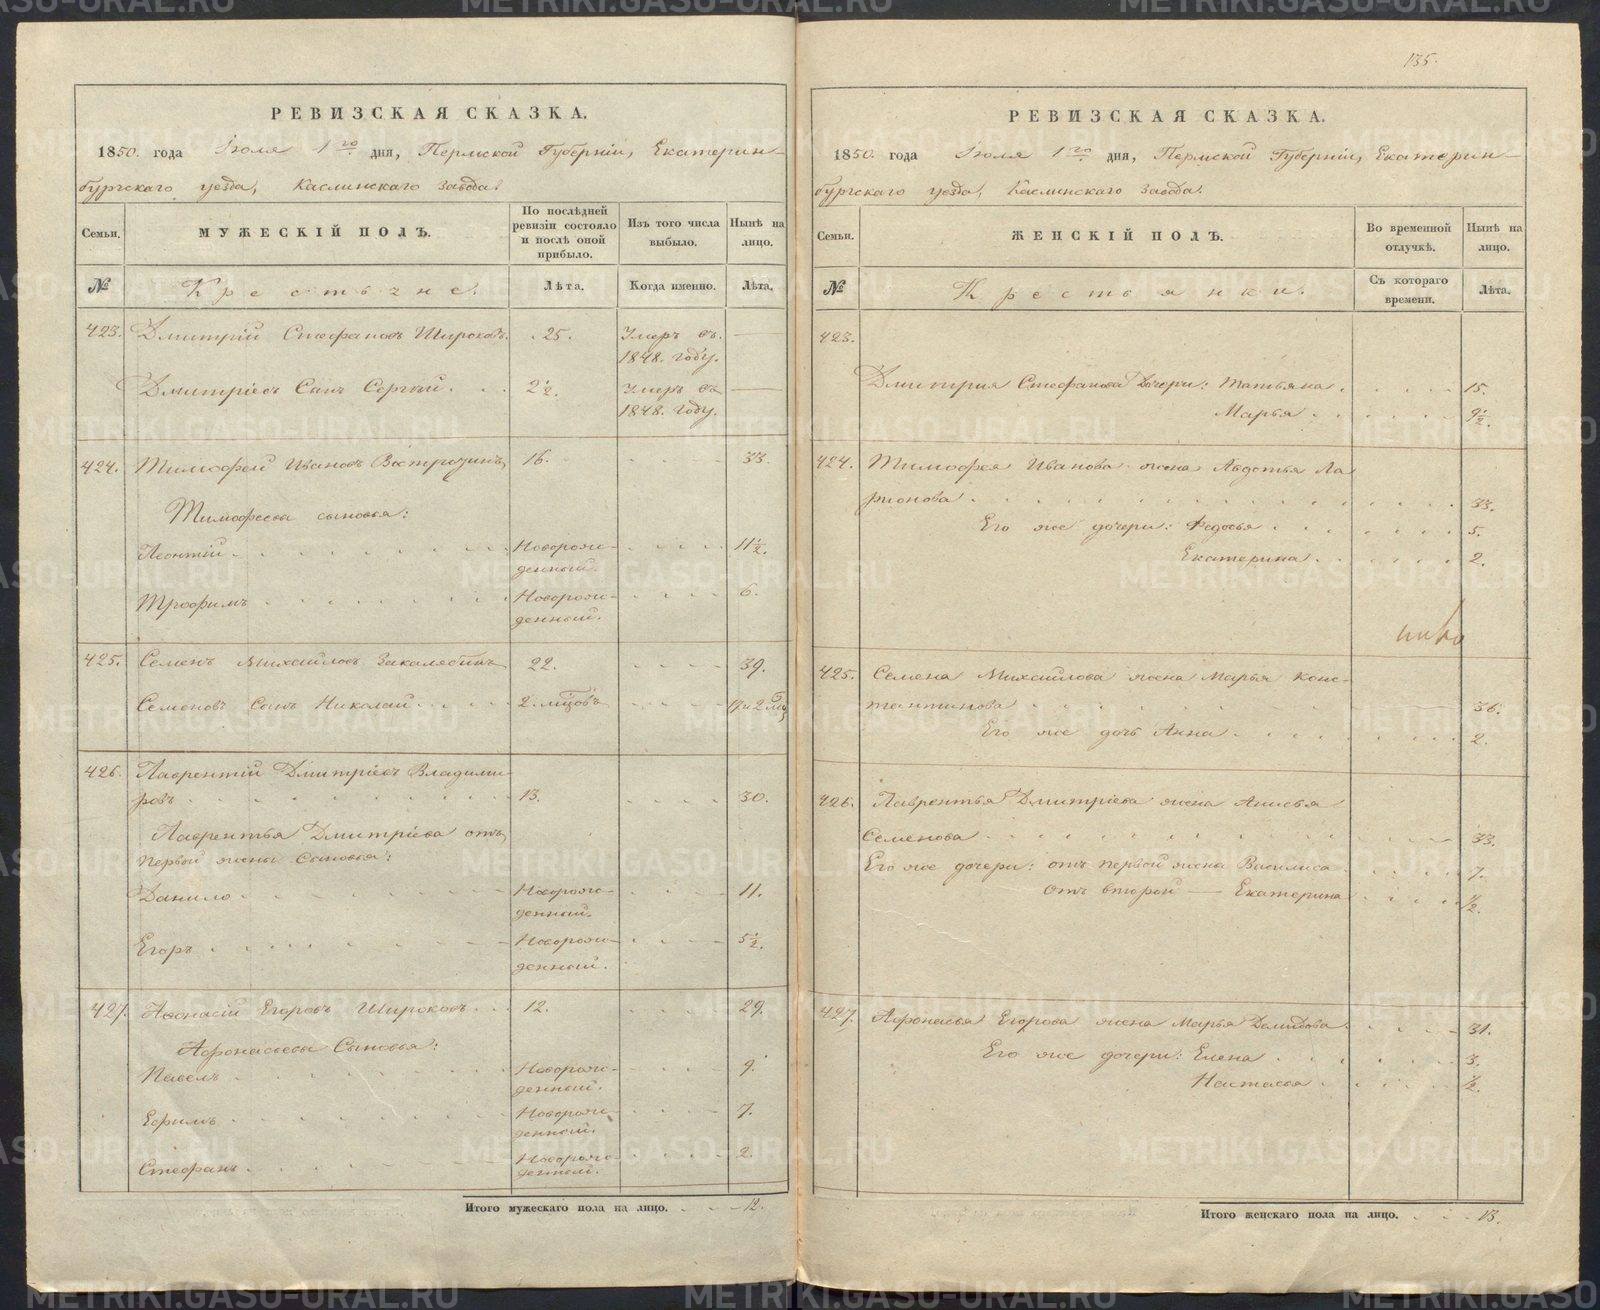 РЕВИЗСКАЯ СКАЗКА.
1850. года Іюля 1го дня, Пермской Губерніи, Екатерин-
бургскаго уезда, Каслинскаго завода.
Семьи. МУЖЕСКІЙ ПОЛЪ. По послѣдней ревизіи состояло и послѣ оной прибыло. Изъ того числа выбыло. Нынѣ на лицо.
№ Крестьяне. Лѣта. Когда именно. Лѣта.
423. Дмитрій Стефановъ Широковъ. 25. Умеръ въ
1848. году.
Дмитріевъ Сынъ Сергѣй. 2½. Умеръ въ
1848. году.
424. Тимофей Ивановъ Вострочинъ 16. 33.
Тимофеева сыновья:
Леонтій. Новорож- 11½.
денный.
Трофимъ Новорож- 6.
денный.
425. Семенъ Михайловъ Закалябинъ 22. 39.
Семеновъ Сынъ Николай 2. мѣсѣцовъ
426. Лаврентій Дмитріевъ Владими-
ровъ 13. 30.
Лаврентья Дмитріева отъ
первой жены Сыновья:
Данило Новорож- 11.
денный.
Егоръ Новорож- 5½.
денный.
427. Афонасій Егоровъ Широковъ 12. 29.
Афонасьевы Сыновья:
Павелъ Новорож- 9.
денный.
Ефимъ Новорож- 7.
денный.
Стефанъ Новорож- 2.
денный.
Итого мужескаго пола на лицо. 12.
135.
РЕВИЗСКАЯ СКАЗКА.
1850. года Іюля 1го дня, Пермской Губерніи, Екатерин-
бургскаго уезда, Каслинскаго Завода.
Семьи. ЖЕНСКІЙ ПОЛЪ. Во временной отлучкѣ. Нынѣ на лицо.
№ Крестьянки. Съ котораго времени. Лѣта.
423.
Дмитрия Стефанова Дочери: Татьяна 15.
Марья 9½.
424. Тимофея Иванова жена Авдотья Ла
рионова 33.
Его же дочери: Федосья 5.
Екатерина 2.
425. Семена Михайлова жена Марья Конс-
тантинова 36.
Его же дочь Анна 2.
426. Лаврентья Дмитріева жена Анисья
Семенова 33.
Его же дочери: отъ первой жены Василиса 7.
Отъ второй — Екатерина ½.
427. Афонасья Егорова жена Марья Демидова 31.
Его же дочери: Елена 3.
Настасья ½.
Итого женскаго пола на лицо. 13.
METRIKI.GASO-URAL.RU